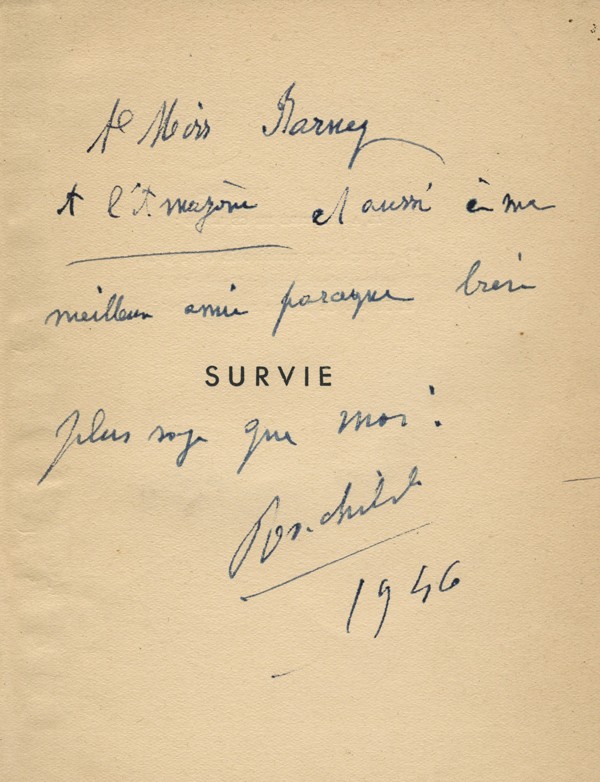 A Miss Barney
A l'Amazone et aussi à ma
meilleure amie parceque bien
SURVIE
plus sage que moi !
Rachilde
1946